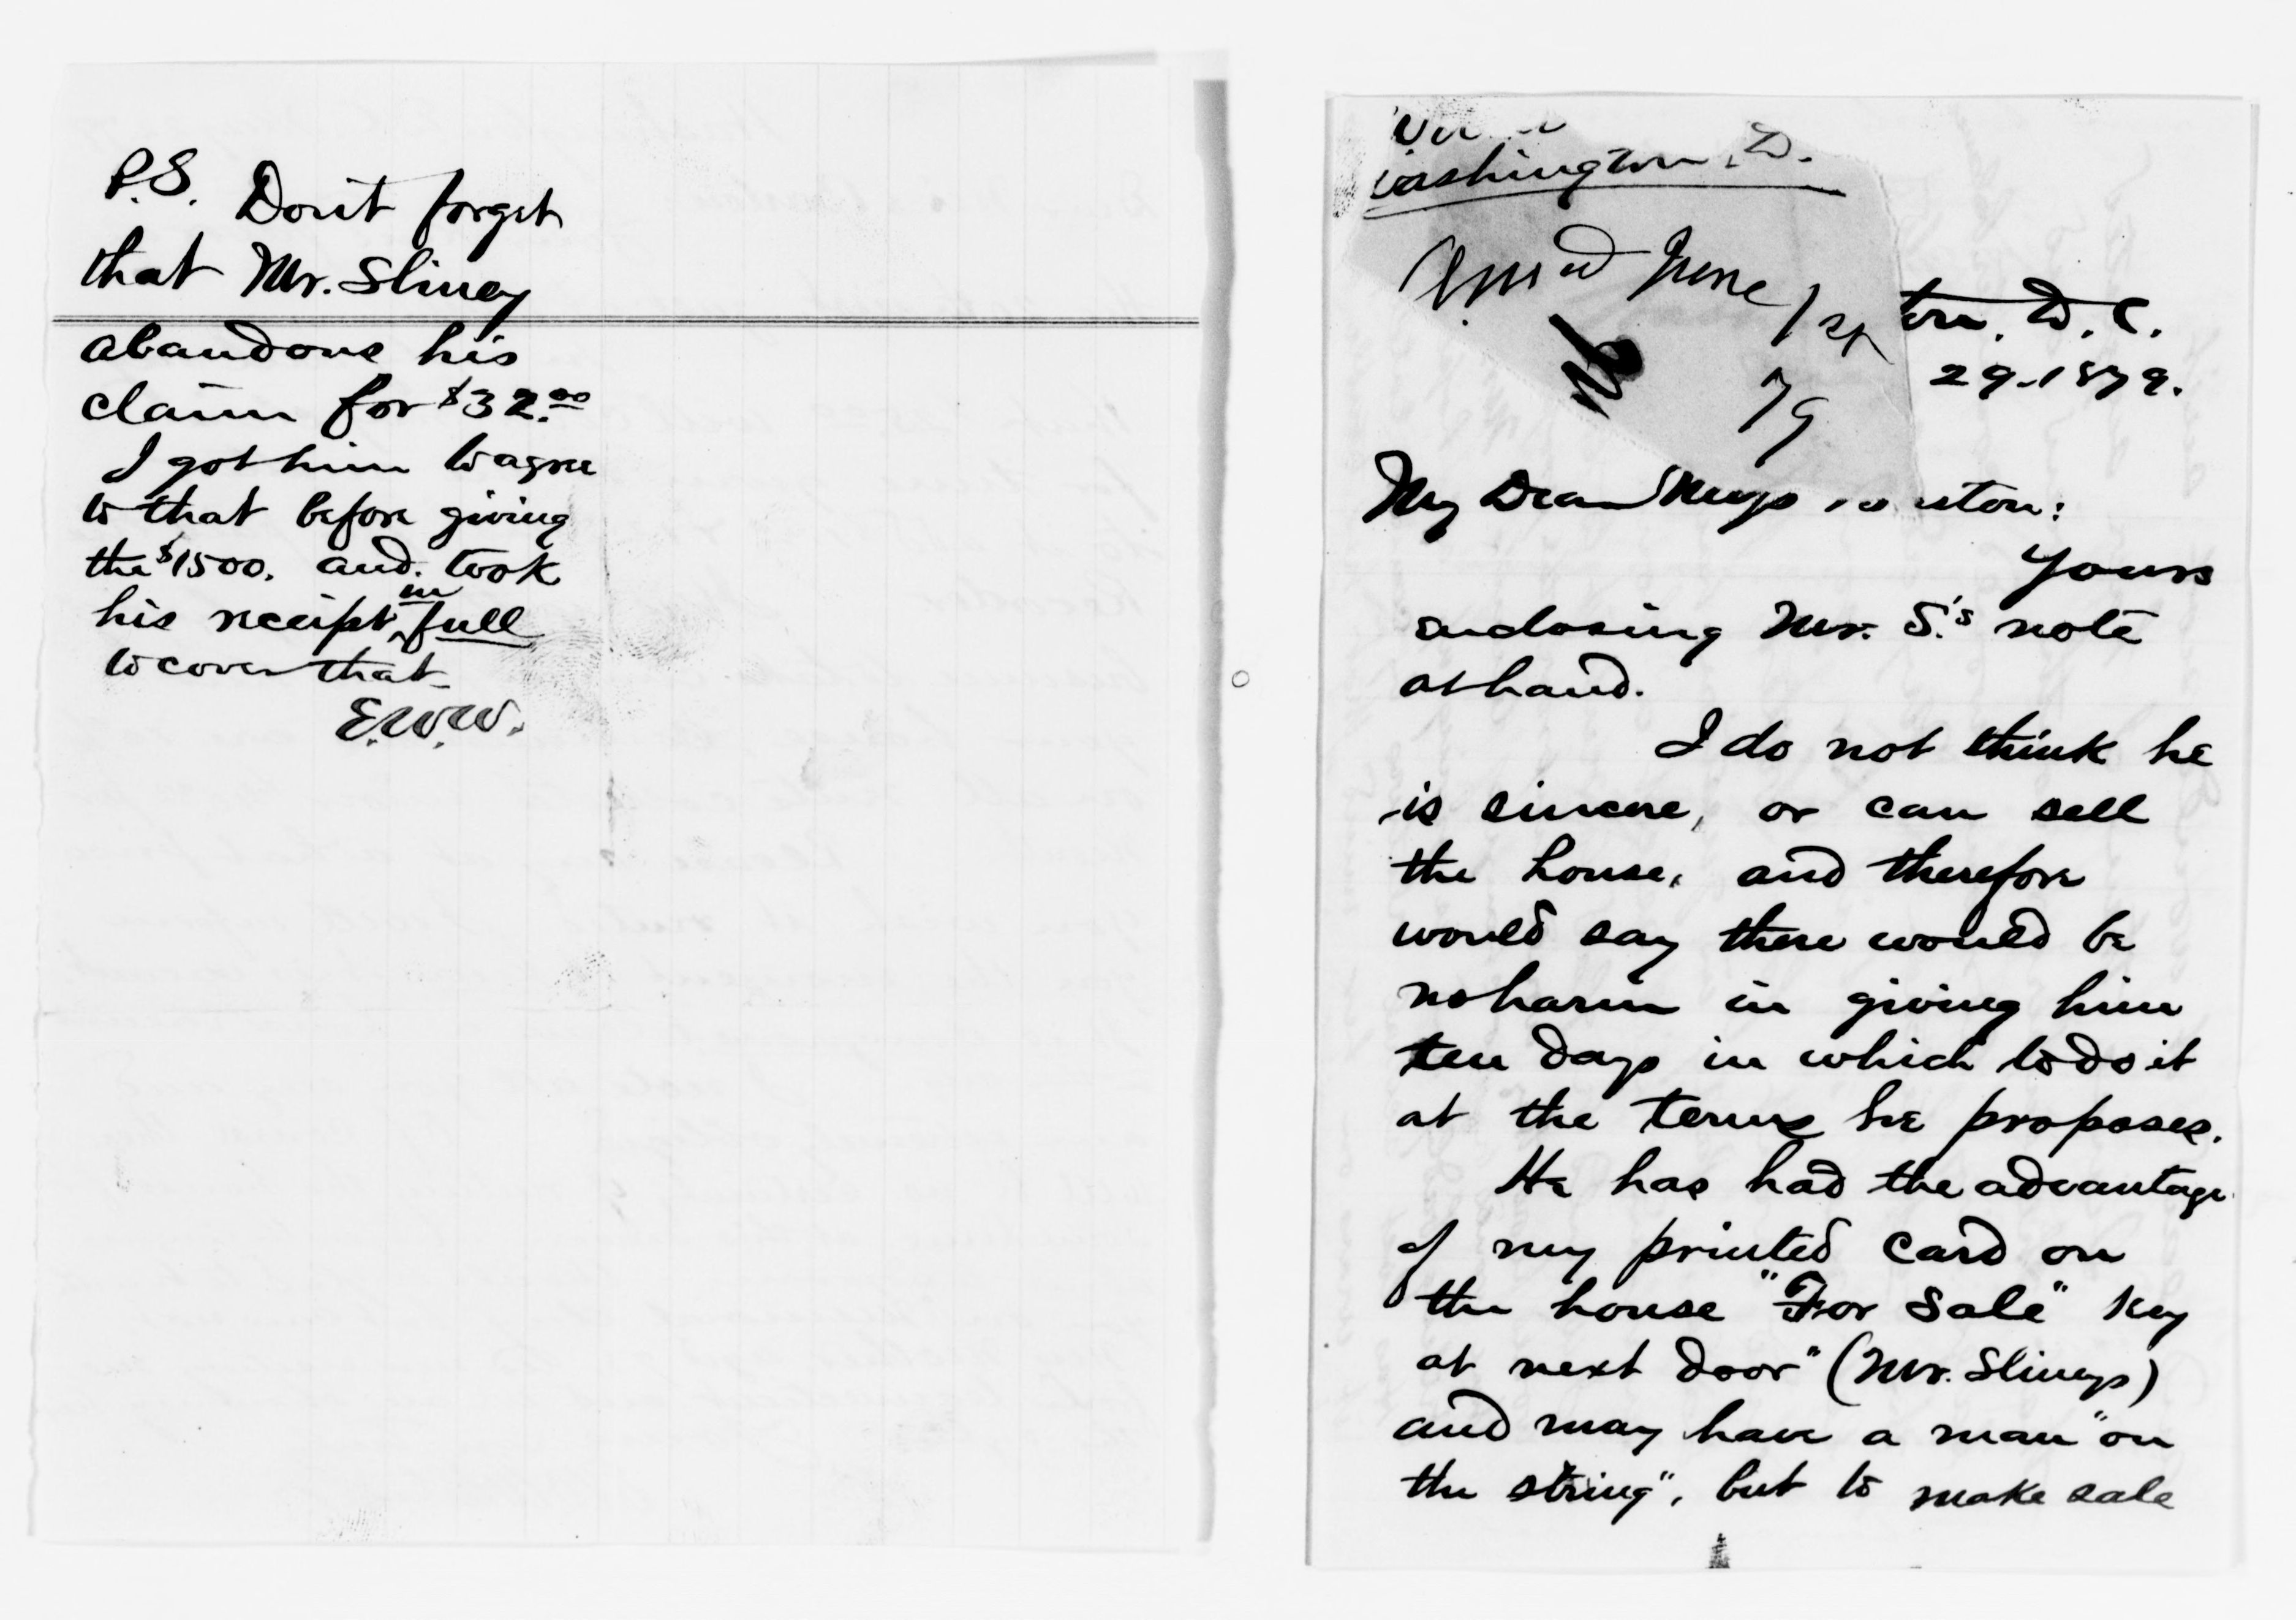 P.S. Don't forget
that Mr. Sliney
abandons his
claim for $32.00
I got him to agree
to that before giving
the $1500. and took
his receipt in full
to cover that
E.W.W.
Washington, D.
June 1st
79
D. C.
29-1879.
My Dear
Yours
enclosing Mr. S.'s note
at hand.
I do not think he
is sincere, or can sell
the house, and therefore
would say there would be
no harm in giving him
ten days in which to do it
at the terms he proposes.
He has had the advantage
of my printed card on
the house "For Sale" Key
at next door" (Mr. Slineys)
and may have a man "on
the string", but to make sale